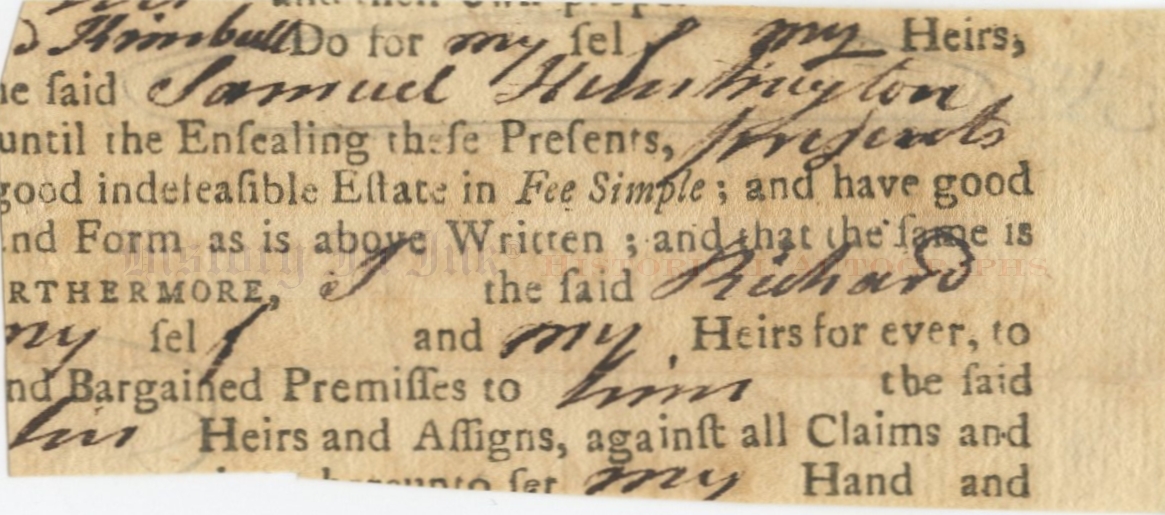 and their own proper
d Kimball Do for my ſelf my Heirs,
he ſaid Samuel Huntington
until the Enſealing theſe Preſents, presents
good indefeaſible Eſtate in Fee Simple ; and have good
and Form as is above Written ; and that the ſame is
History In Ink HISTORICAL AUTOGRAPHS
RTHERMORE, I the ſaid Richard
my ſelf and my Heirs for ever, to
nd Bargained Premiſſes to him the ſaid
his Heirs and Aſſigns, againſt all Claims and
hereunto ſet my Hand and